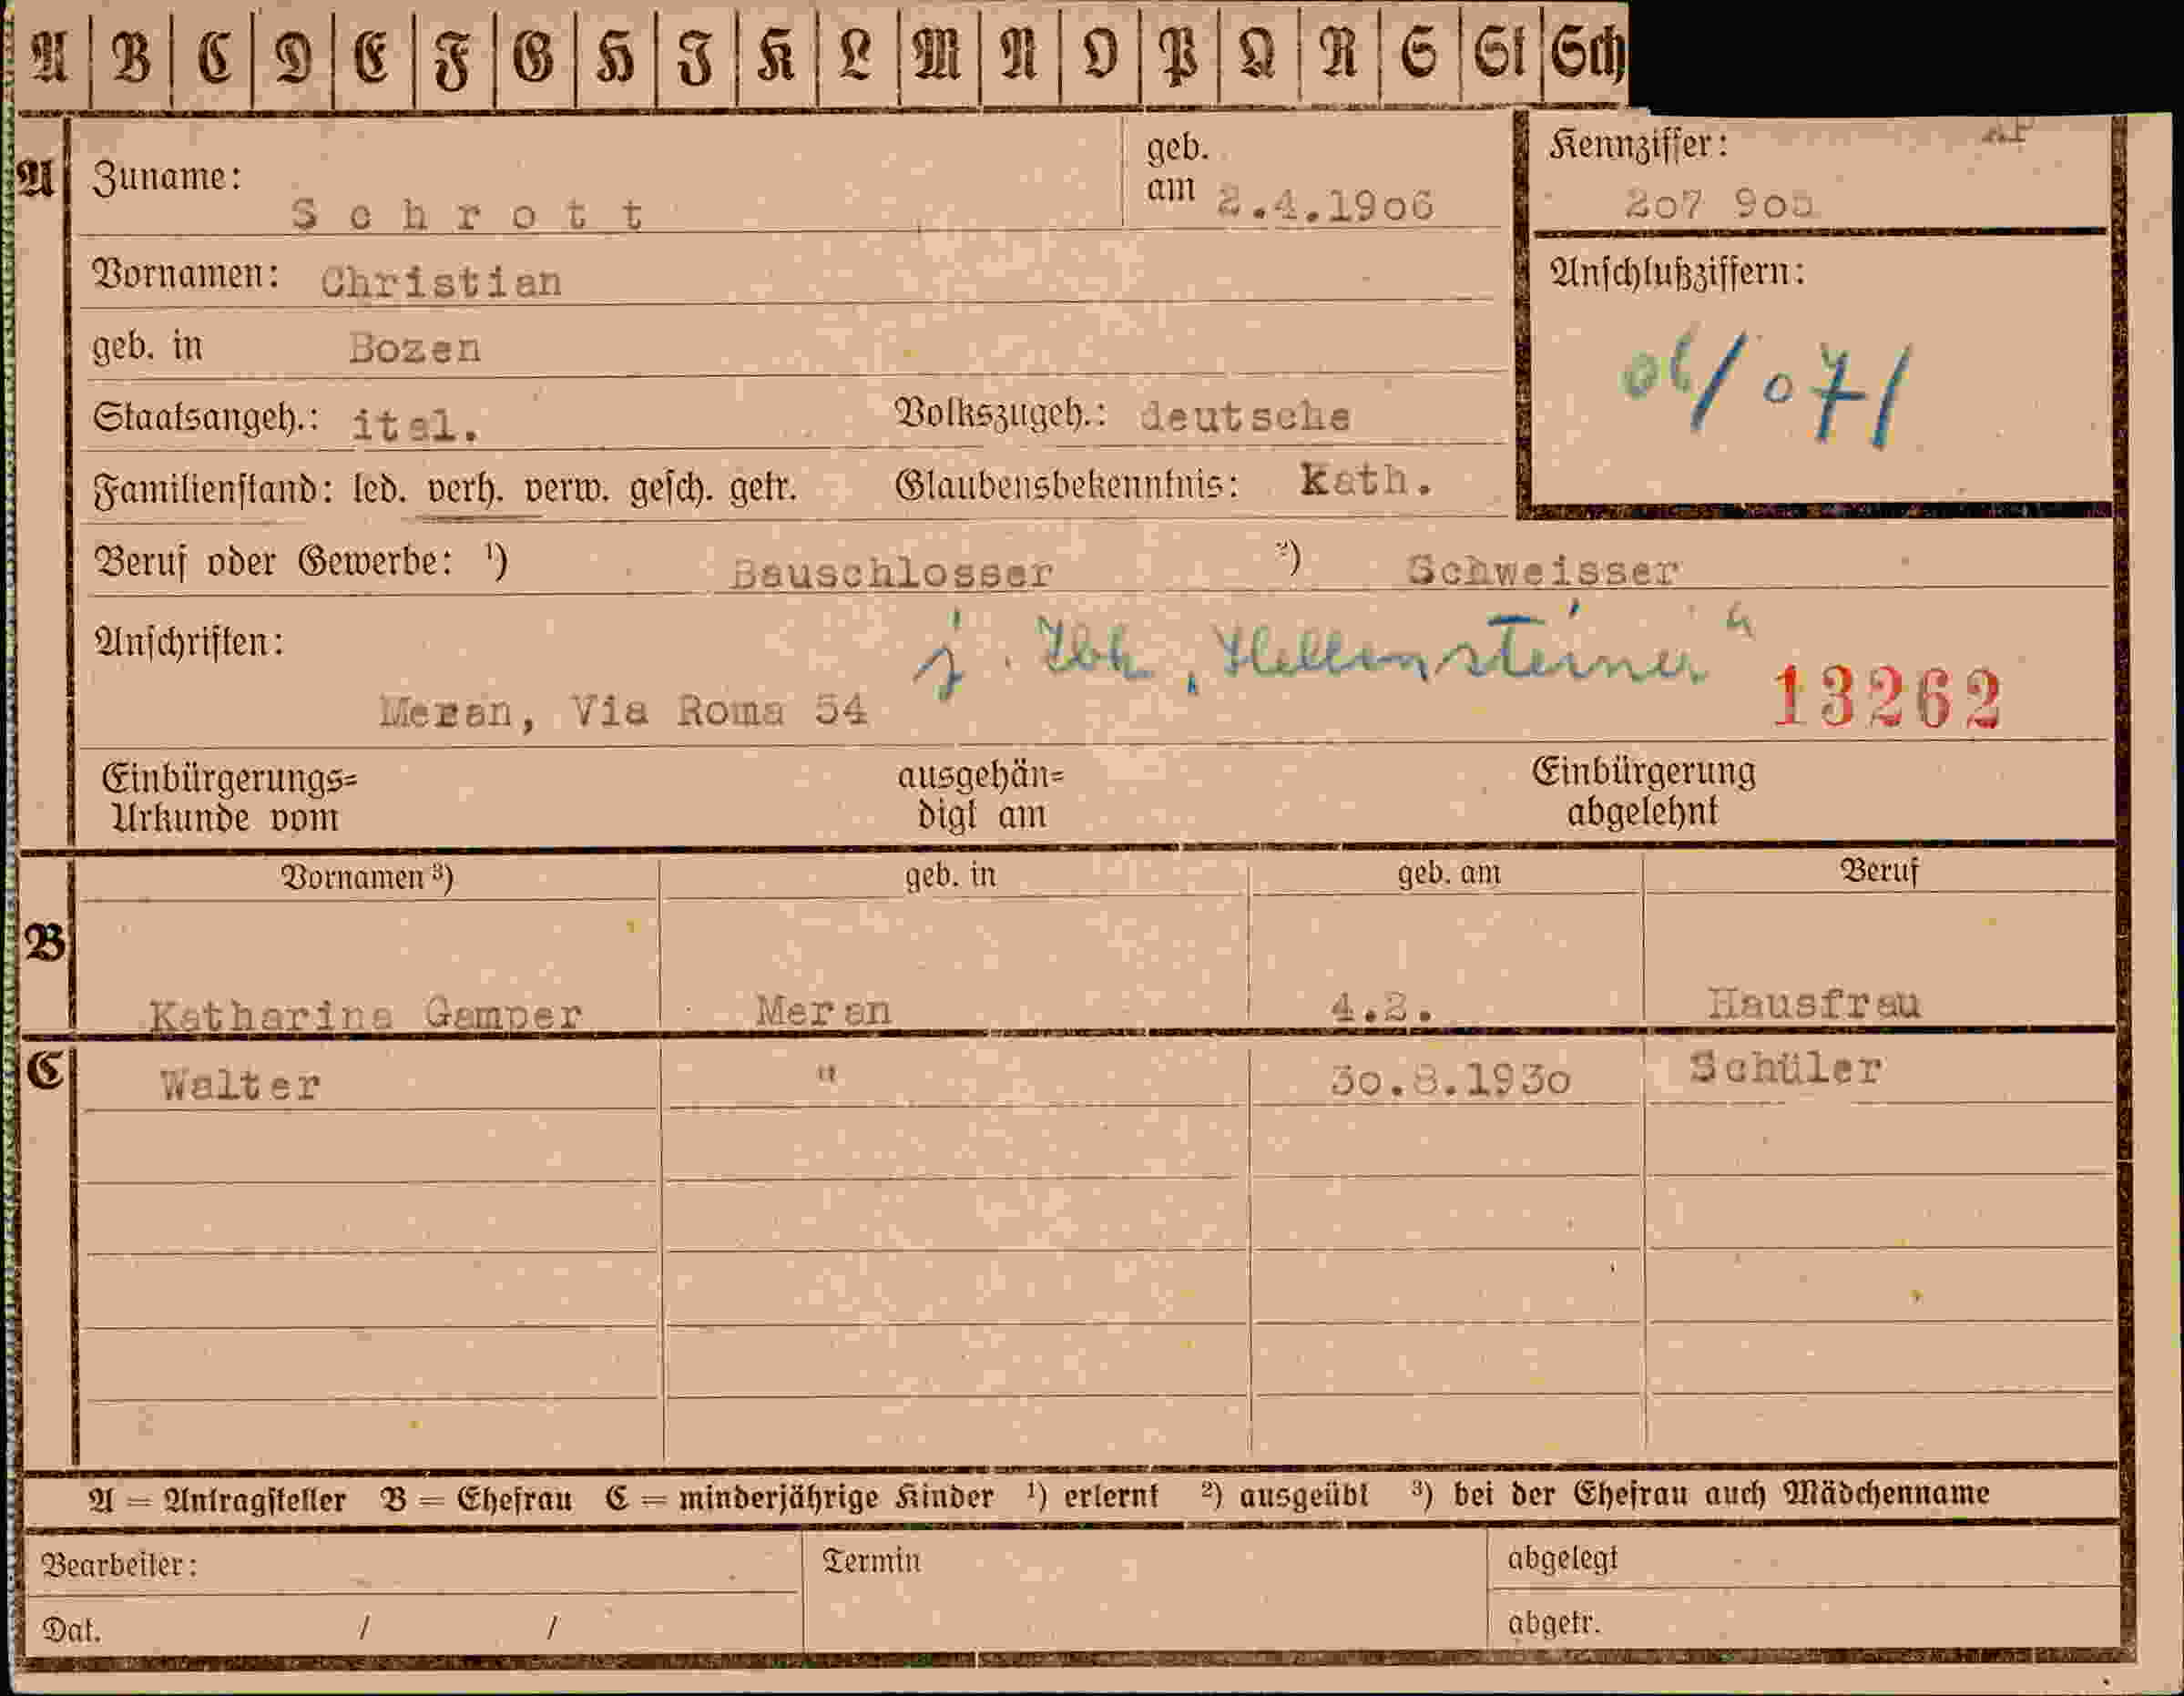 A B C D E F G H I K L M N O P Q R S St Sch
A Zuname: Schrott geb. am 2.4.1906 Kennziffer: 207 905
Vornamen: Christian Anschlußziffern:
geb. in Bozen 06/07/
Staatsangeh.: ital. Volkszugeh.: deutsche
Familienstand: led. verh. verw. gesch. getr. Glaubensbekenntnis: kath.
Beruf oder Gewerbe: ¹) Bauschlosser ²) Schweisser
Anschriften: j. Ibk „Hellensteiner“
Meran, Via Roma 54 13262
Einbürgerungs= ausgehän= Einbürgerung
Urkunde vom digt am abgelehnt
Vornamen ³) geb. in geb. am Beruf
B
Katharina Gamper Meran 4.2. Hausfrau
C Walter " 30.8.1930 Schüler
A = Antragsteller B = Ehefrau C = minderjährige Kinder ¹) erlernt ²) ausgeübt ³) bei der Ehefrau auch Mädchenname
Bearbeiter: Termin abgelegt
Dat. / / abgetr.